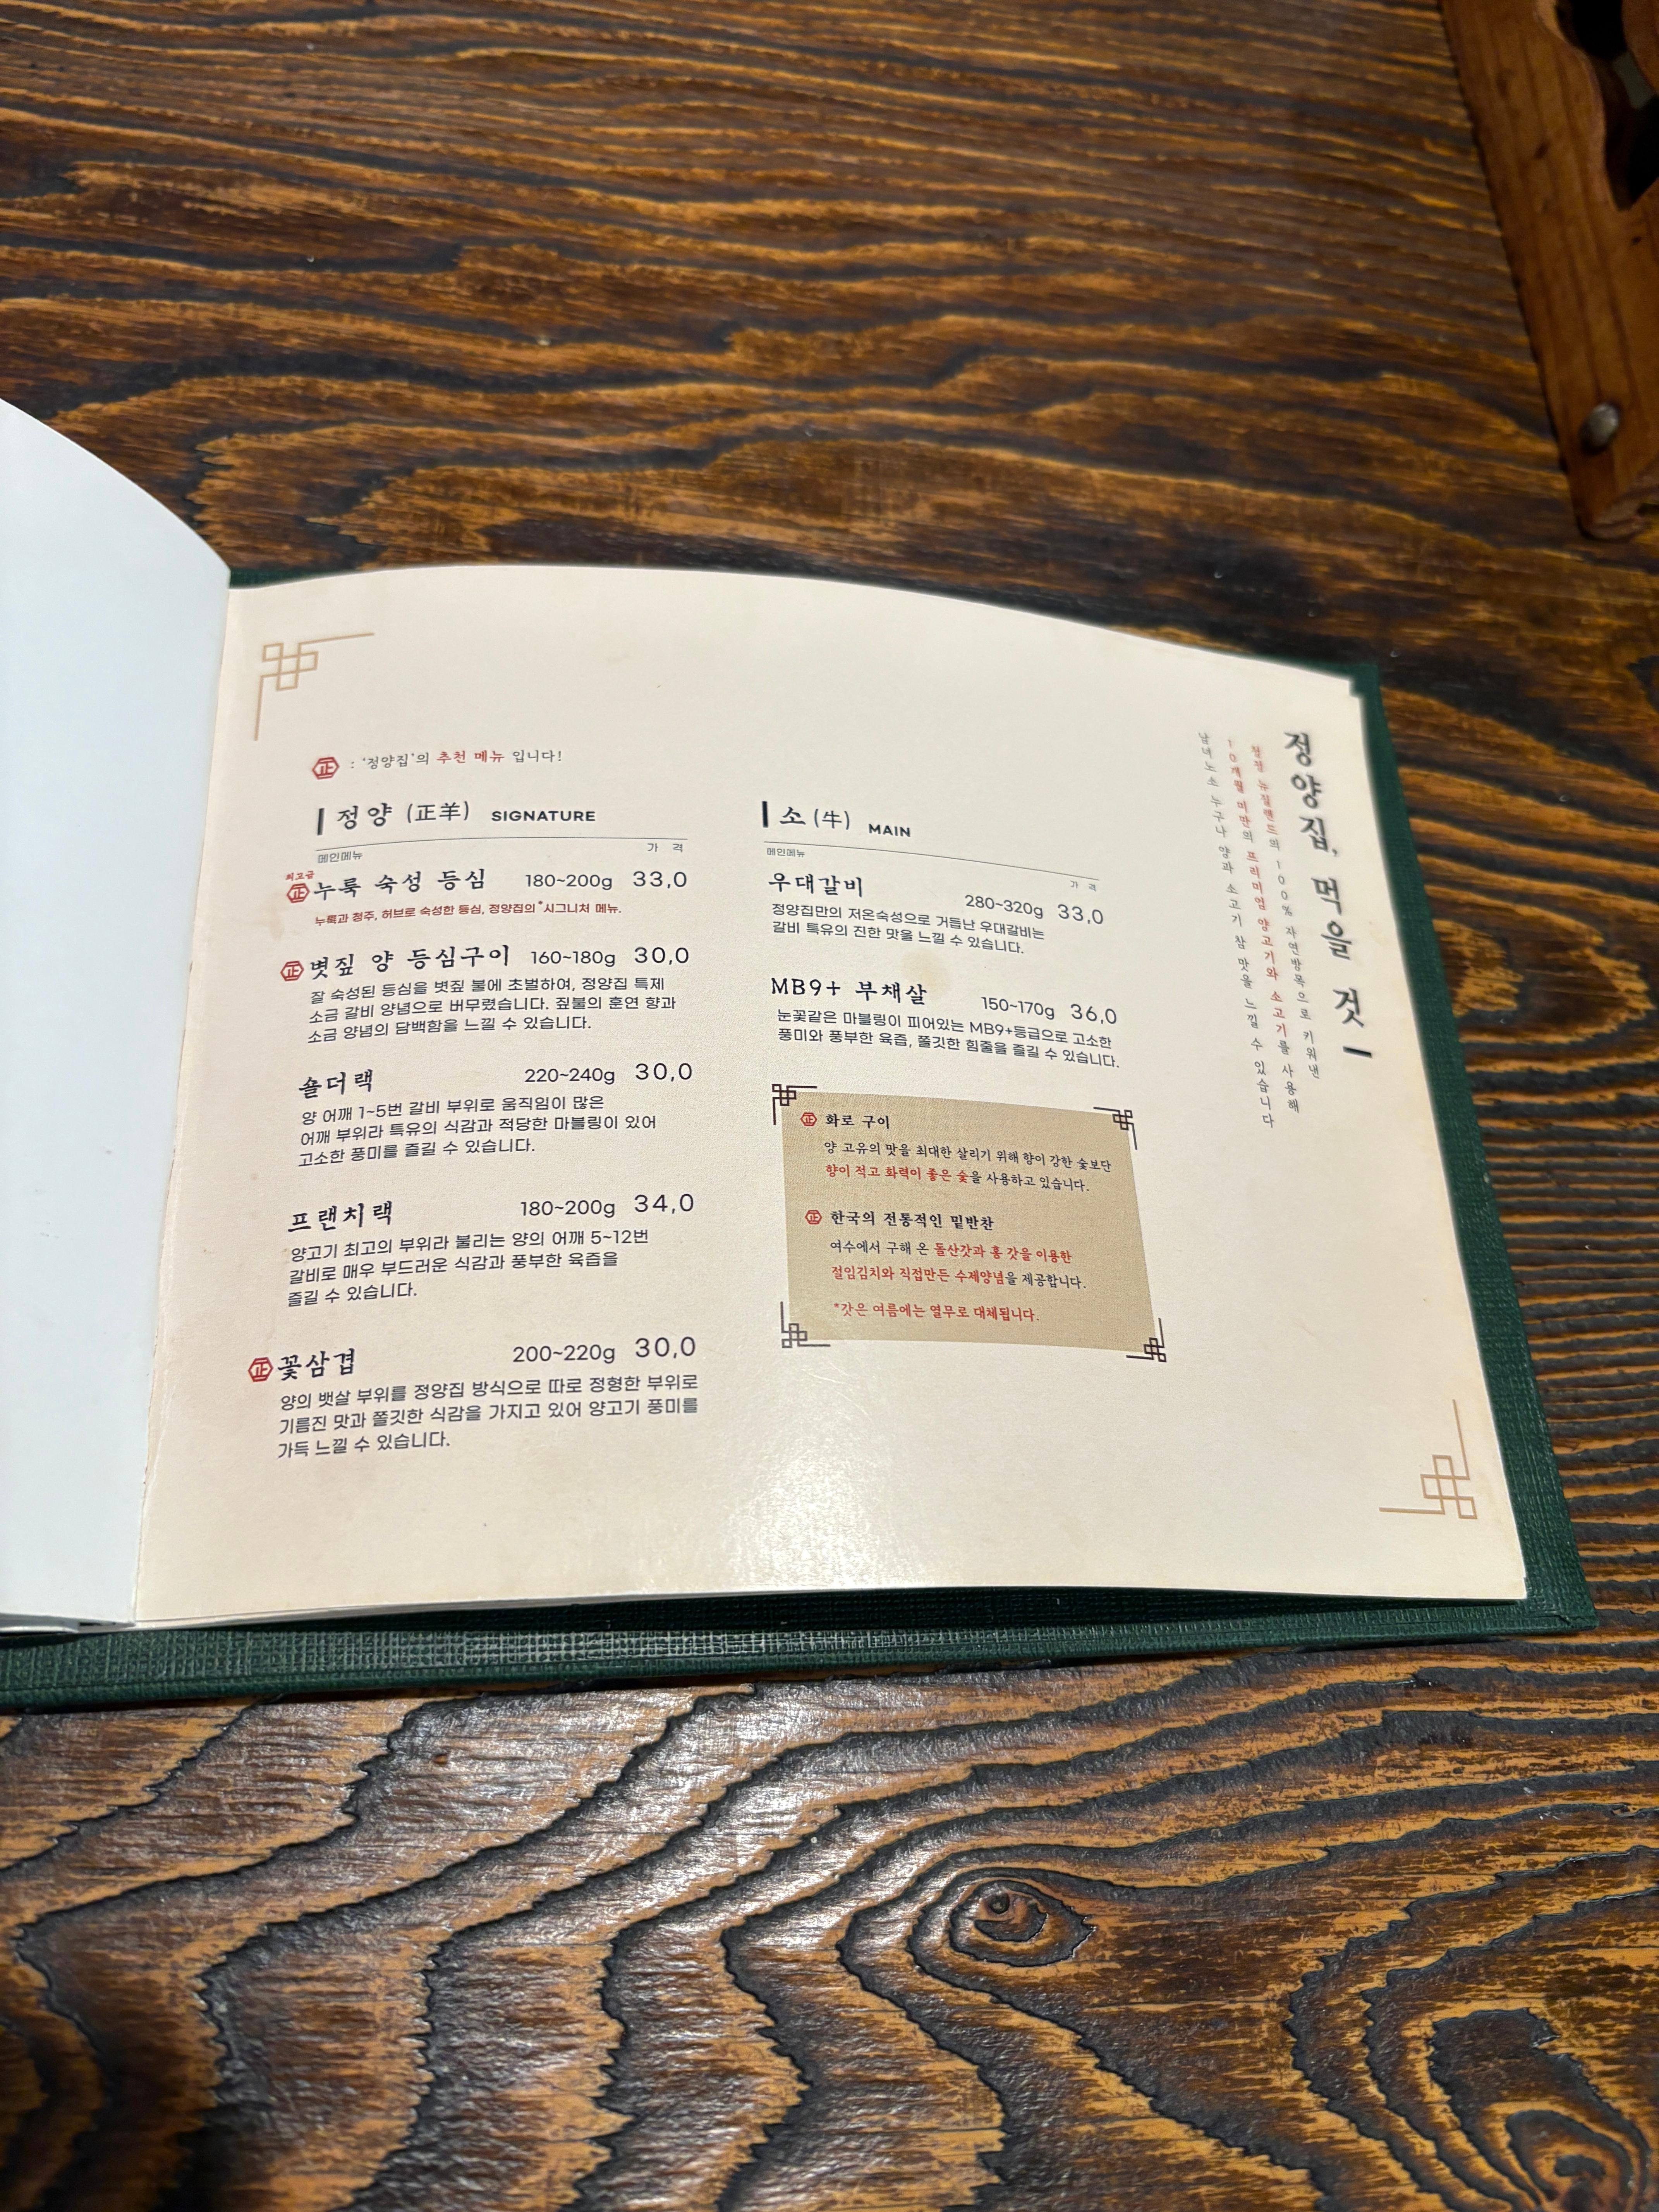 正 : '정양집'의 추천 메뉴 입니다!
정양 (正羊) SIGNATURE
메인메뉴 가 격
최고급
正 누룩 숙성 등심 180~200g 33,0
누룩과 청주, 허브로 숙성한 등심, 정양집의 *시그니처 메뉴.
正 볏짚 양 등심구이 160~180g 30,0
잘 숙성된 등심을 볏짚 불에 초벌하여, 정양집 특제
소금 갈비 양념으로 버무렸습니다. 짚불의 훈연 향과
소금 양념의 담백함을 느낄 수 있습니다.
숄더랙 220~240g 30,0
양 어깨 1~5번 갈비 부위로 움직임이 많은
어깨 부위라 특유의 식감과 적당한 마블링이 있어
고소한 풍미를 즐길 수 있습니다.
프랜치랙 180~200g 34,0
양고기 최고의 부위라 불리는 양의 어깨 5~12번
갈비로 매우 부드러운 식감과 풍부한 육즙을
즐길 수 있습니다.
正 꽃삼겹 200~220g 30,0
양의 뱃살 부위를 정양집 방식으로 따로 정형한 부위로
기름진 맛과 쫄깃한 식감을 가지고 있어 양고기 풍미를
가득 느낄 수 있습니다.
소 (牛) MAIN
메인메뉴 가 격
우대갈비 280~320g 33,0
정양집만의 저온숙성으로 거듭난 우대갈비는
갈비 특유의 진한 맛을 느낄 수 있습니다.
MB9+ 부채살 150~170g 36,0
눈꽃같은 마블링이 피어있는 MB9+등급으로 고소한
풍미와 풍부한 육즙, 쫄깃한 힘줄을 즐길 수 있습니다.
正 화로 구이
양 고유의 맛을 최대한 살리기 위해 향이 강한 숯보단
향이 적고 화력이 좋은 숯을 사용하고 있습니다.
正 한국의 전통적인 밑반찬
여수에서 구해 온 돌산갓과 홍 갓을 이용한
절임김치와 직접만든 수제양념을 제공합니다.
*갓은 여름에는 열무로 대체됩니다.
정양집, 먹을 것 ㅡ
청정 뉴질랜드의 100% 자연방목으로 키워낸
10개월 미만의 프리미엄 양고기와 소고기를 사용해
남녀노소 누구나 양과 소고기 참 맛을 느낄 수 있습니다